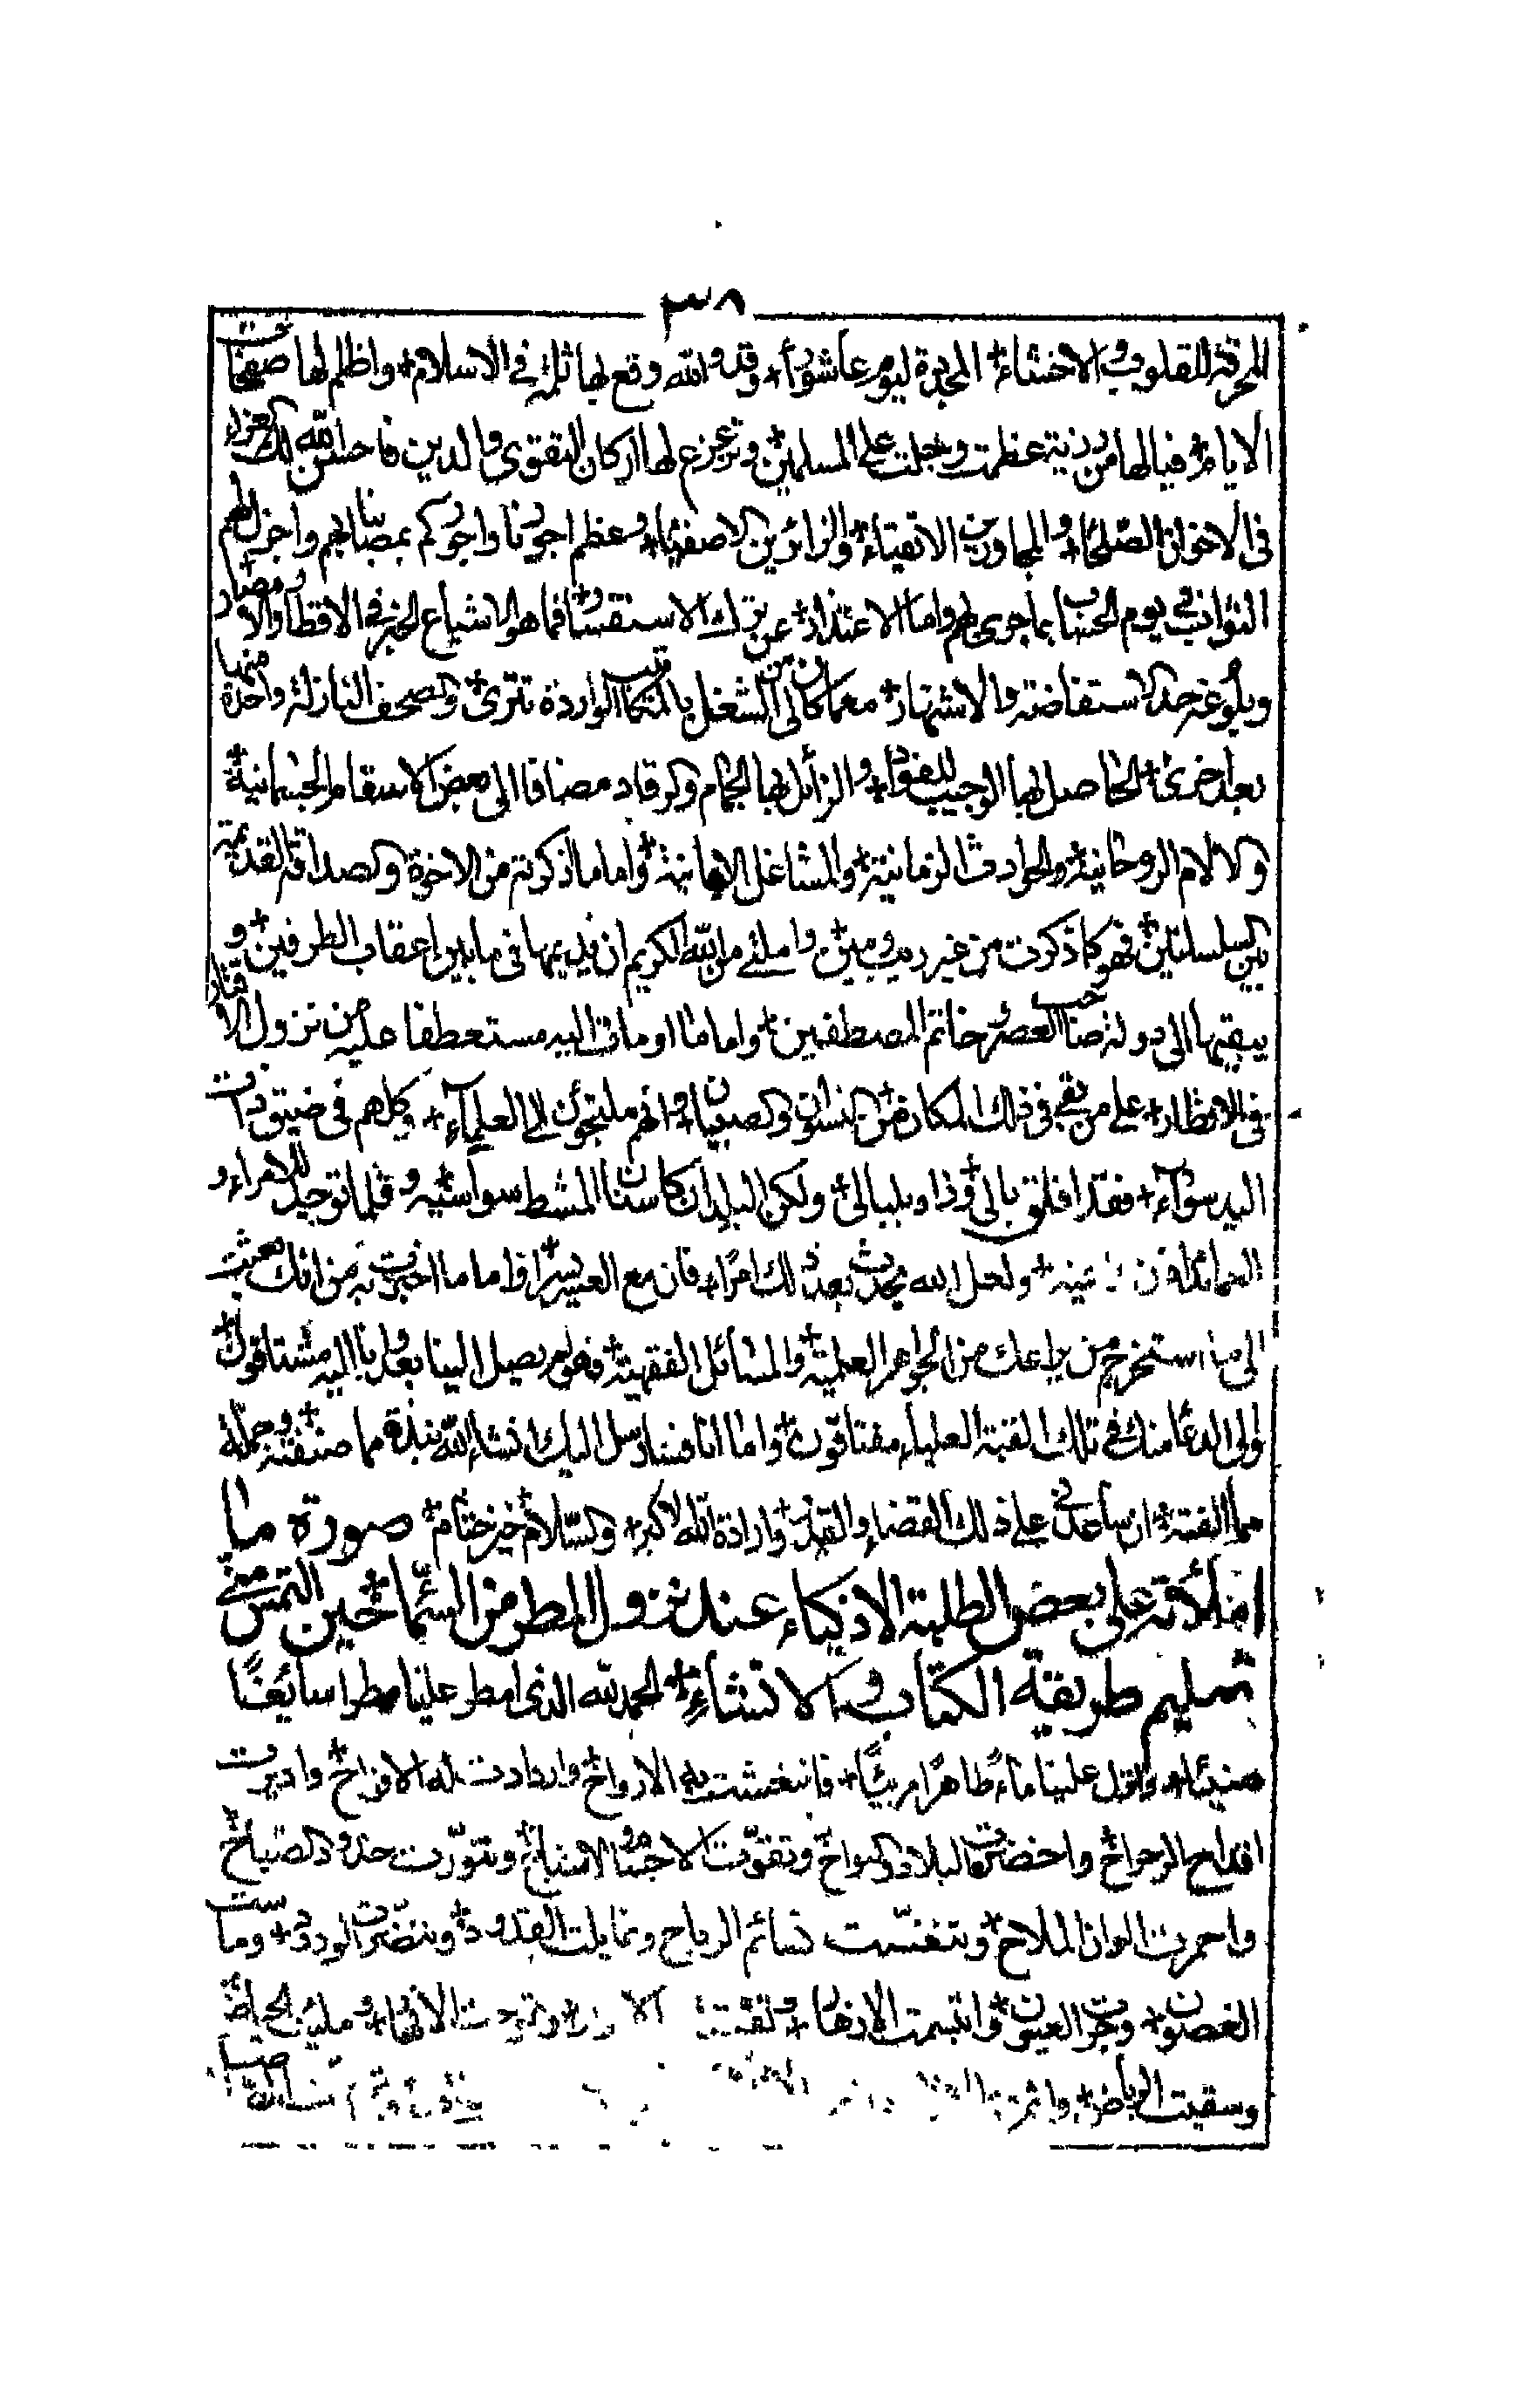 ٣٨
المحرقة للقلوب والاحشاء المجددة ليوم عاشوراء وقد والله وقع بها ثلمة في الاسلام واظلم لها صفحات
الايام فيالها من رزية عظمت وجلت على المسلمين وتزعزع لها اركان التقوى والدين فاحسن الله لك العزاء
فى الاخوان الصلحاء والمجاورين الاتقياء والزائرين الاصفياء وعظم اجورنا واجوركم بمصابنا بهم واجزل لهم
الثواب في يوم الحساب بما جرى لهم واما الاعتذار عن ترك الاستفسار فما هو الا شياع الخبر في الاقطار والامصار
وبلوغه حد الاستفاضة والاشتهار مع ما كان لى من الشغل بالمكاتب الواردة تترى والصحف النازلة واحدة منها
بعد اخرى الحاصل بها الوجيب للفواد والزائل بها الجمام والرقاد مضافا الى بعض الاسقام الجسمانية
والالام الروحانية والحوادث الزمانية والمشاغل واما ما ذكرتم من الاخوة والصداقة القديمة
بين السلسلتين فهو كما ذكرت من غير ريب ومين واملئ من الله الكريم ان يديمها فى ما بين اعقاب الطرفين و
يبقيها الى دولة صاحب العصر خاتم المصطفين واما ما اومات اليه مستعطفا عليه من نزول الاقدار
فى الانظار على من بقى فى ذلك المكان من النسوان والصبيان وانهم ملتجؤن الى العلماء وكلهم فى ضيق ذات
اليد سواء فقد اقلق بالى وزاد بلبالى ولكن البلدان كاسنان المشط سواسيه وقلما توجد للامراء و
ولعل الله يحدث بعد ذلك امرا فان مع العسر يسرا واما ما اخبرت به من انك بعثت
الى ما استخرج من يراعك من الجواهر العلمية والمسائل الفقهية فهو لم يصل الينا بعد وانا اليه مشتاقون
والى الدعا منك في تلك القبة العلياء مفتاقون واما انا فسارسل اليك انشاء الله نبذة مما صنفته وجملة
مما الفته ان ساعدنى على ذلك القضاء والقدر وارادة الله الاكبر والسلام خير ختام صورة ما
املأته على بعض الطلبة الاذكياء عند نزول المطر من السماء حين التمس منى
تعليم طريقة الكتاب والانشاء الحمد لله الذى امطر علينا مطرا سائغا
هنيئا وانزل علينا ماء طاهرا مريئا فانتعشت به الارواح وازدادت له الافراح واديرت
اقداح الراح واخضرت البلاد والنواح وتقوت الاجسام والاشباح وتنورت خدود الصباح
واحمرت الوان الملاح وتنفست نسائم الرياح وتمايلت القدود وتنضرت الورود وماست
الغصون وجرت العيون وابتسمت الازهار الانهار وملئت الحياض
وسقيت الرياض